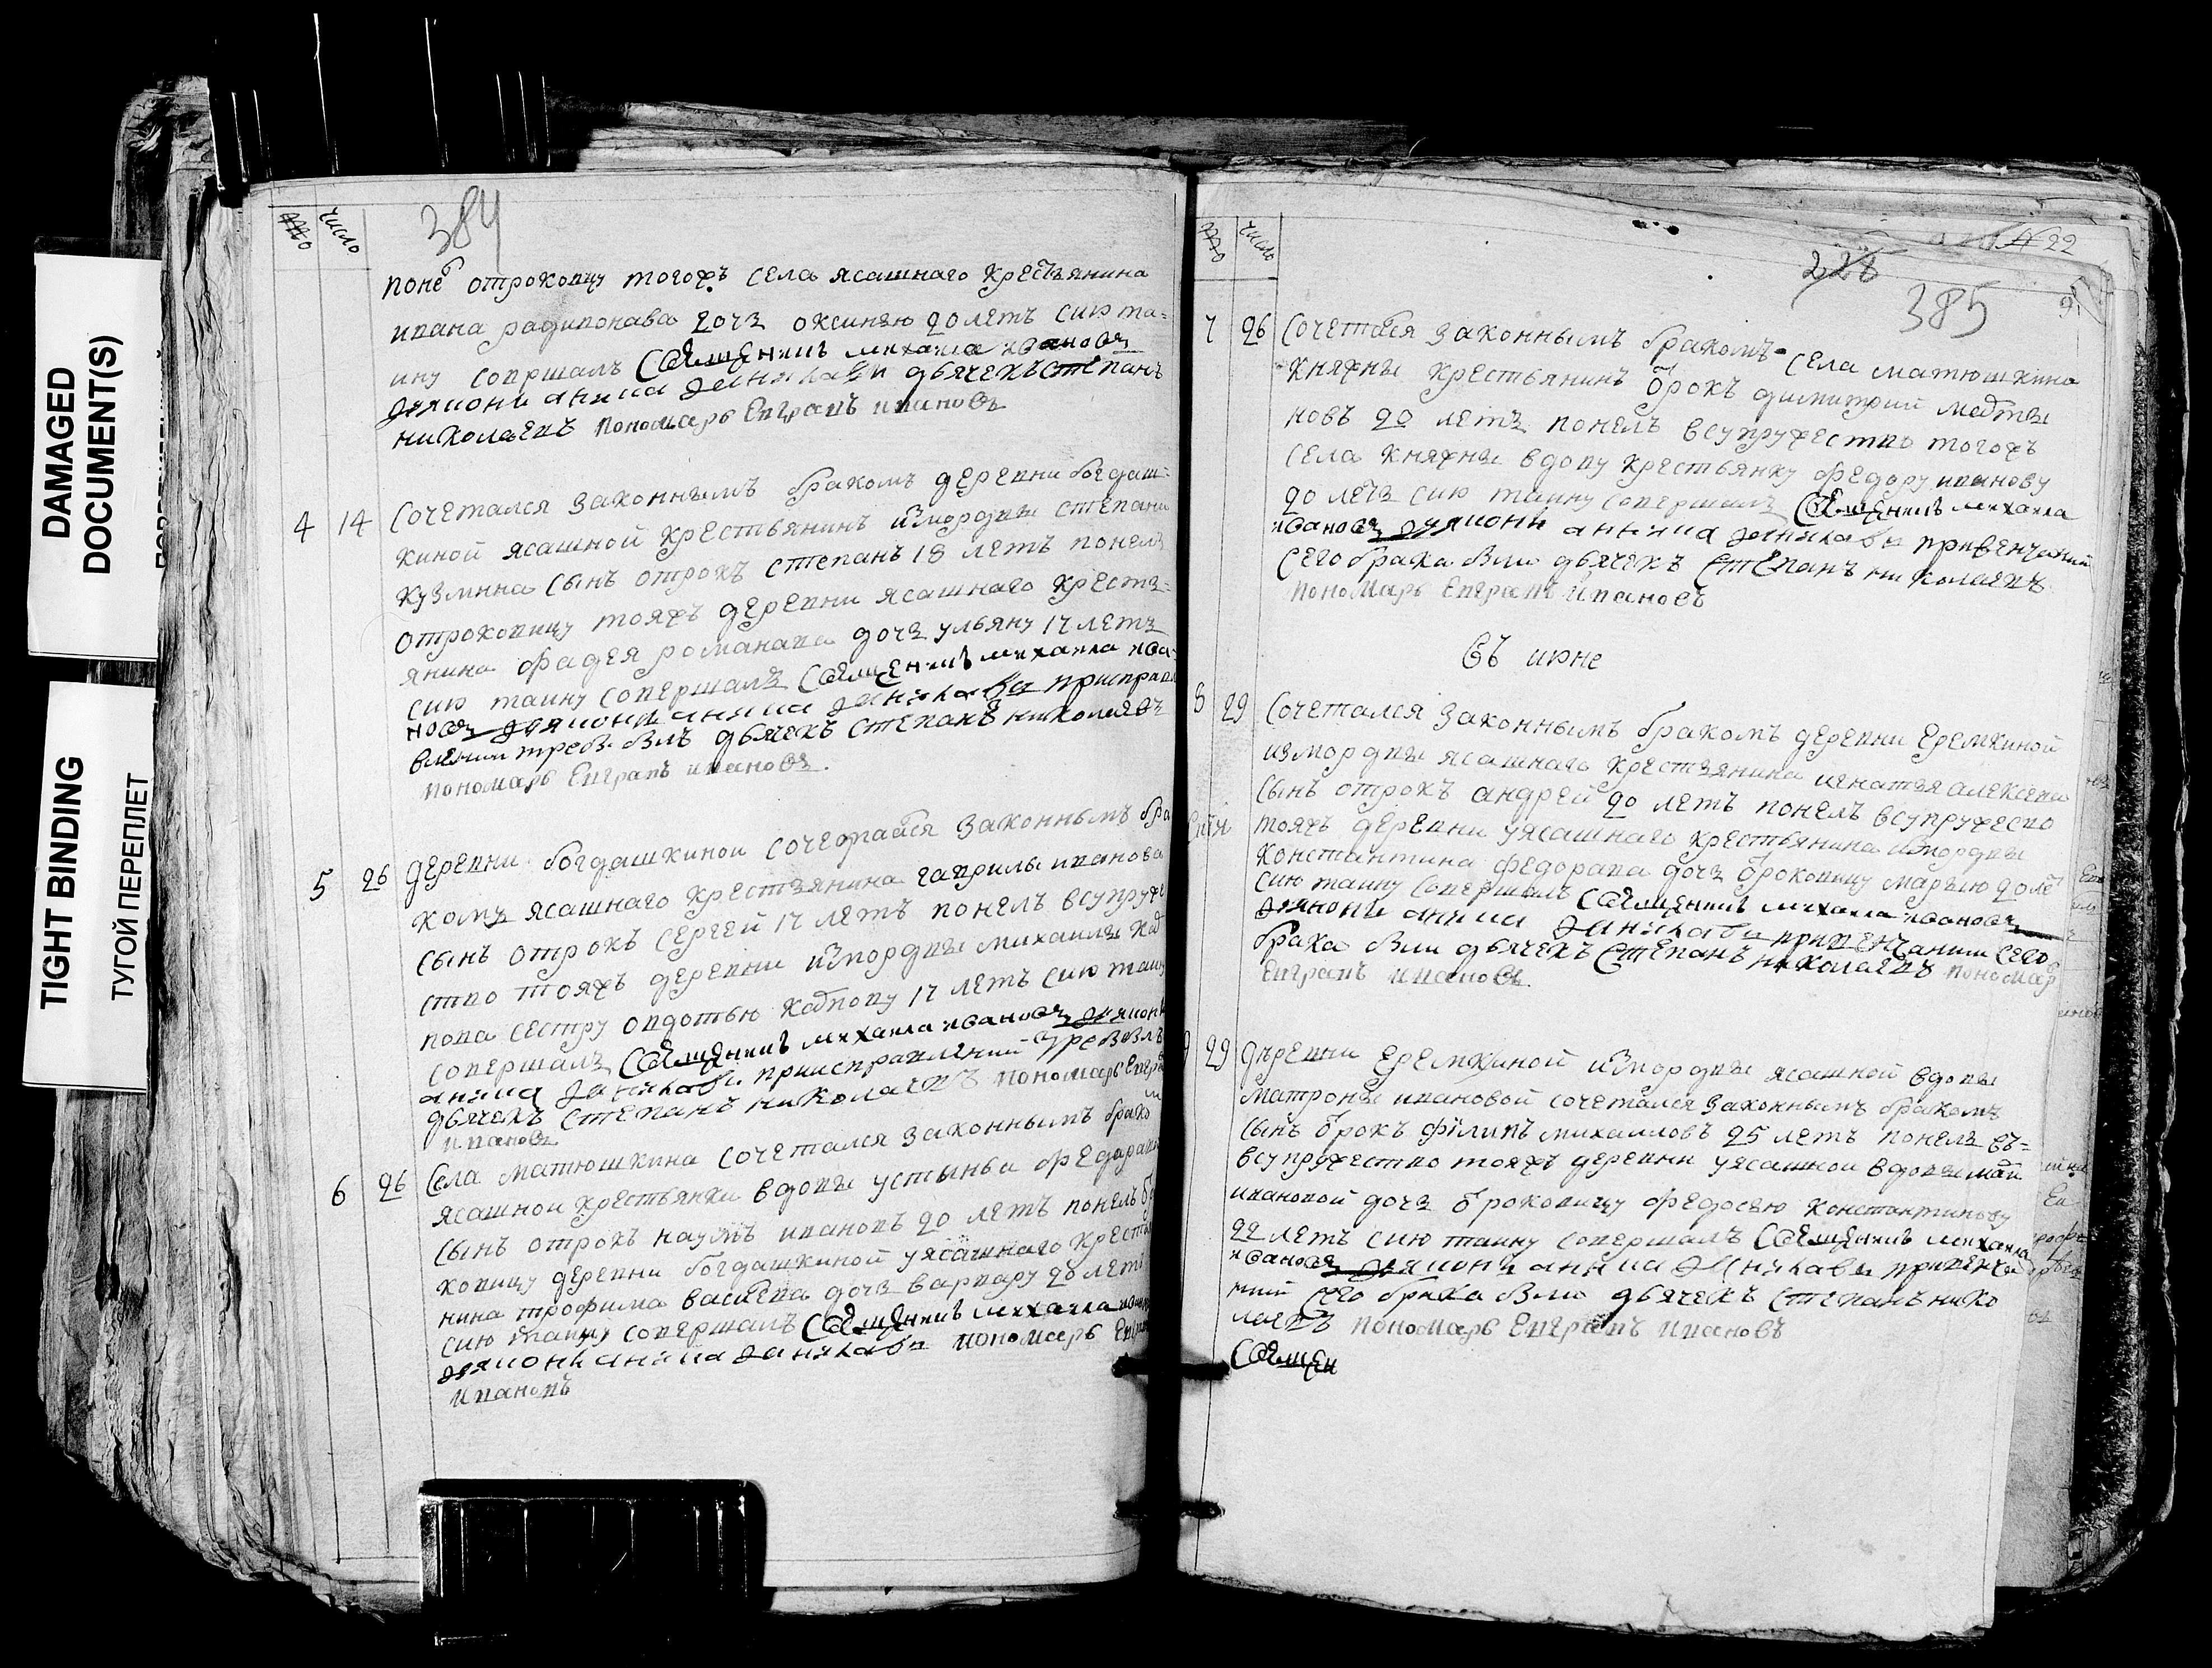 DAMAGED
DOCUMENT(S)
TIGHT BINDING
ТУГОЙ ПЕРЕПЛЕТ
число
384
поне отроковицу тогожъ села ясашнаго крестьянина
ивана радивонава дочь оксинью 20 летъ сию та=
ину совршалъ священникъ михаила ивановъ
дияконъ аника даниловъ дьячекъ степанъ
николаевъ пономарь Евграпъ ивановъ
4 14 Сочетался законнымъ бракомъ деревни богдаш=
киной ясашной крестьянинъ измордвы степана
кузмина сынъ отрокъ степанъ 18 летъ понелъ
отроковицу тояжъ деревни ясашнаго кресть=
янина фадея романава дочь ульяну 17 летъ
сию таину совершалъ священникъ михаила ива=
новъ дияконъ аника приисправ
влении треб. былъ дьячекъ степанъ николаевъ
пономарь Евграпъ ивановъ.
5 26 деревни богдашкинои сочетайся законнымъ бра
комъ ясашнаго крестьянина гаврилы иванова
сынъ отрокъ сергей 17 летъ понелъ всупруже
ство тояжъ деревни измордвы михаилы
пова сестру овдотью 17 летъ сию таину
совершалъ священникъ михаила ивановъ дияконъ
аника приисправлений треб былъ
дьячекъ степанъ николаевъ пономарь Евгра
ивановъ
6 26 Села матюшкина сочетался законнымъ брако м
ясашнои крестьянки вдовы устиньи федарав
сынъ отрокъ наумъ ивановъ 20 летъ понелъ
ковицу деревни богдашкиной уясашнаго кресть
нина трофима васиева дочь варвару 20 летъ
сию таину совершалъ священникъ михаила иван
дияконъ аника пономарь Евгра
ивановъ
число
22
228
385
7 26 Сочетайся законнымъ бракомъ села матюшкина
княжны крестьянинъ отрокъ димитрий матве
новъ 20 летъ понелъ всупружество тогожъ
села княжны вдову крестьянку федору иванову
20 летъ сию таину совершалъ священникъ михаила
ивановъ дияконъ аника привенчаний
сего брака были дьячекъ степанъ николаевъ
пономарь Евграпъ ивановъ
Въ июне
8 29 Сочетался законнымъ бракомъ деревни Еремкиной
измордвы ясашнаго крестьянина игнатья алексева
сынъ отрокъ андрей 20 летъ понелъ всупружесво
тояжъ деревни уясашнаго крестьянина измордвы
константина федорава дочь отроковицу марью 20 ле
сию таину совершалъ священникъ михаила ивановъ
дияконъ аника привенчании сего
брака были дьячекъ степанъ николаевъ пономар
Евграпъ ивановъ
9 29 деревни Еремкиной измордвы ясашной вдовы
матроны ивановой сочетался законнымъ бракомъ
сынъ отрокъ филипъ михаиловъ 25 летъ понелъ въ=
всупружество тояжъ деревни уясашнои вдовы
ивановой дочь отроковицу федосью константинову
22 летъ сию таину совершалъ священникъ михаила
ивановъ дияконъ аника привенча
ний сего брака были дьячекъ степанъ нико
лаевъ пономарь Евграпъ ивановъ
Священ